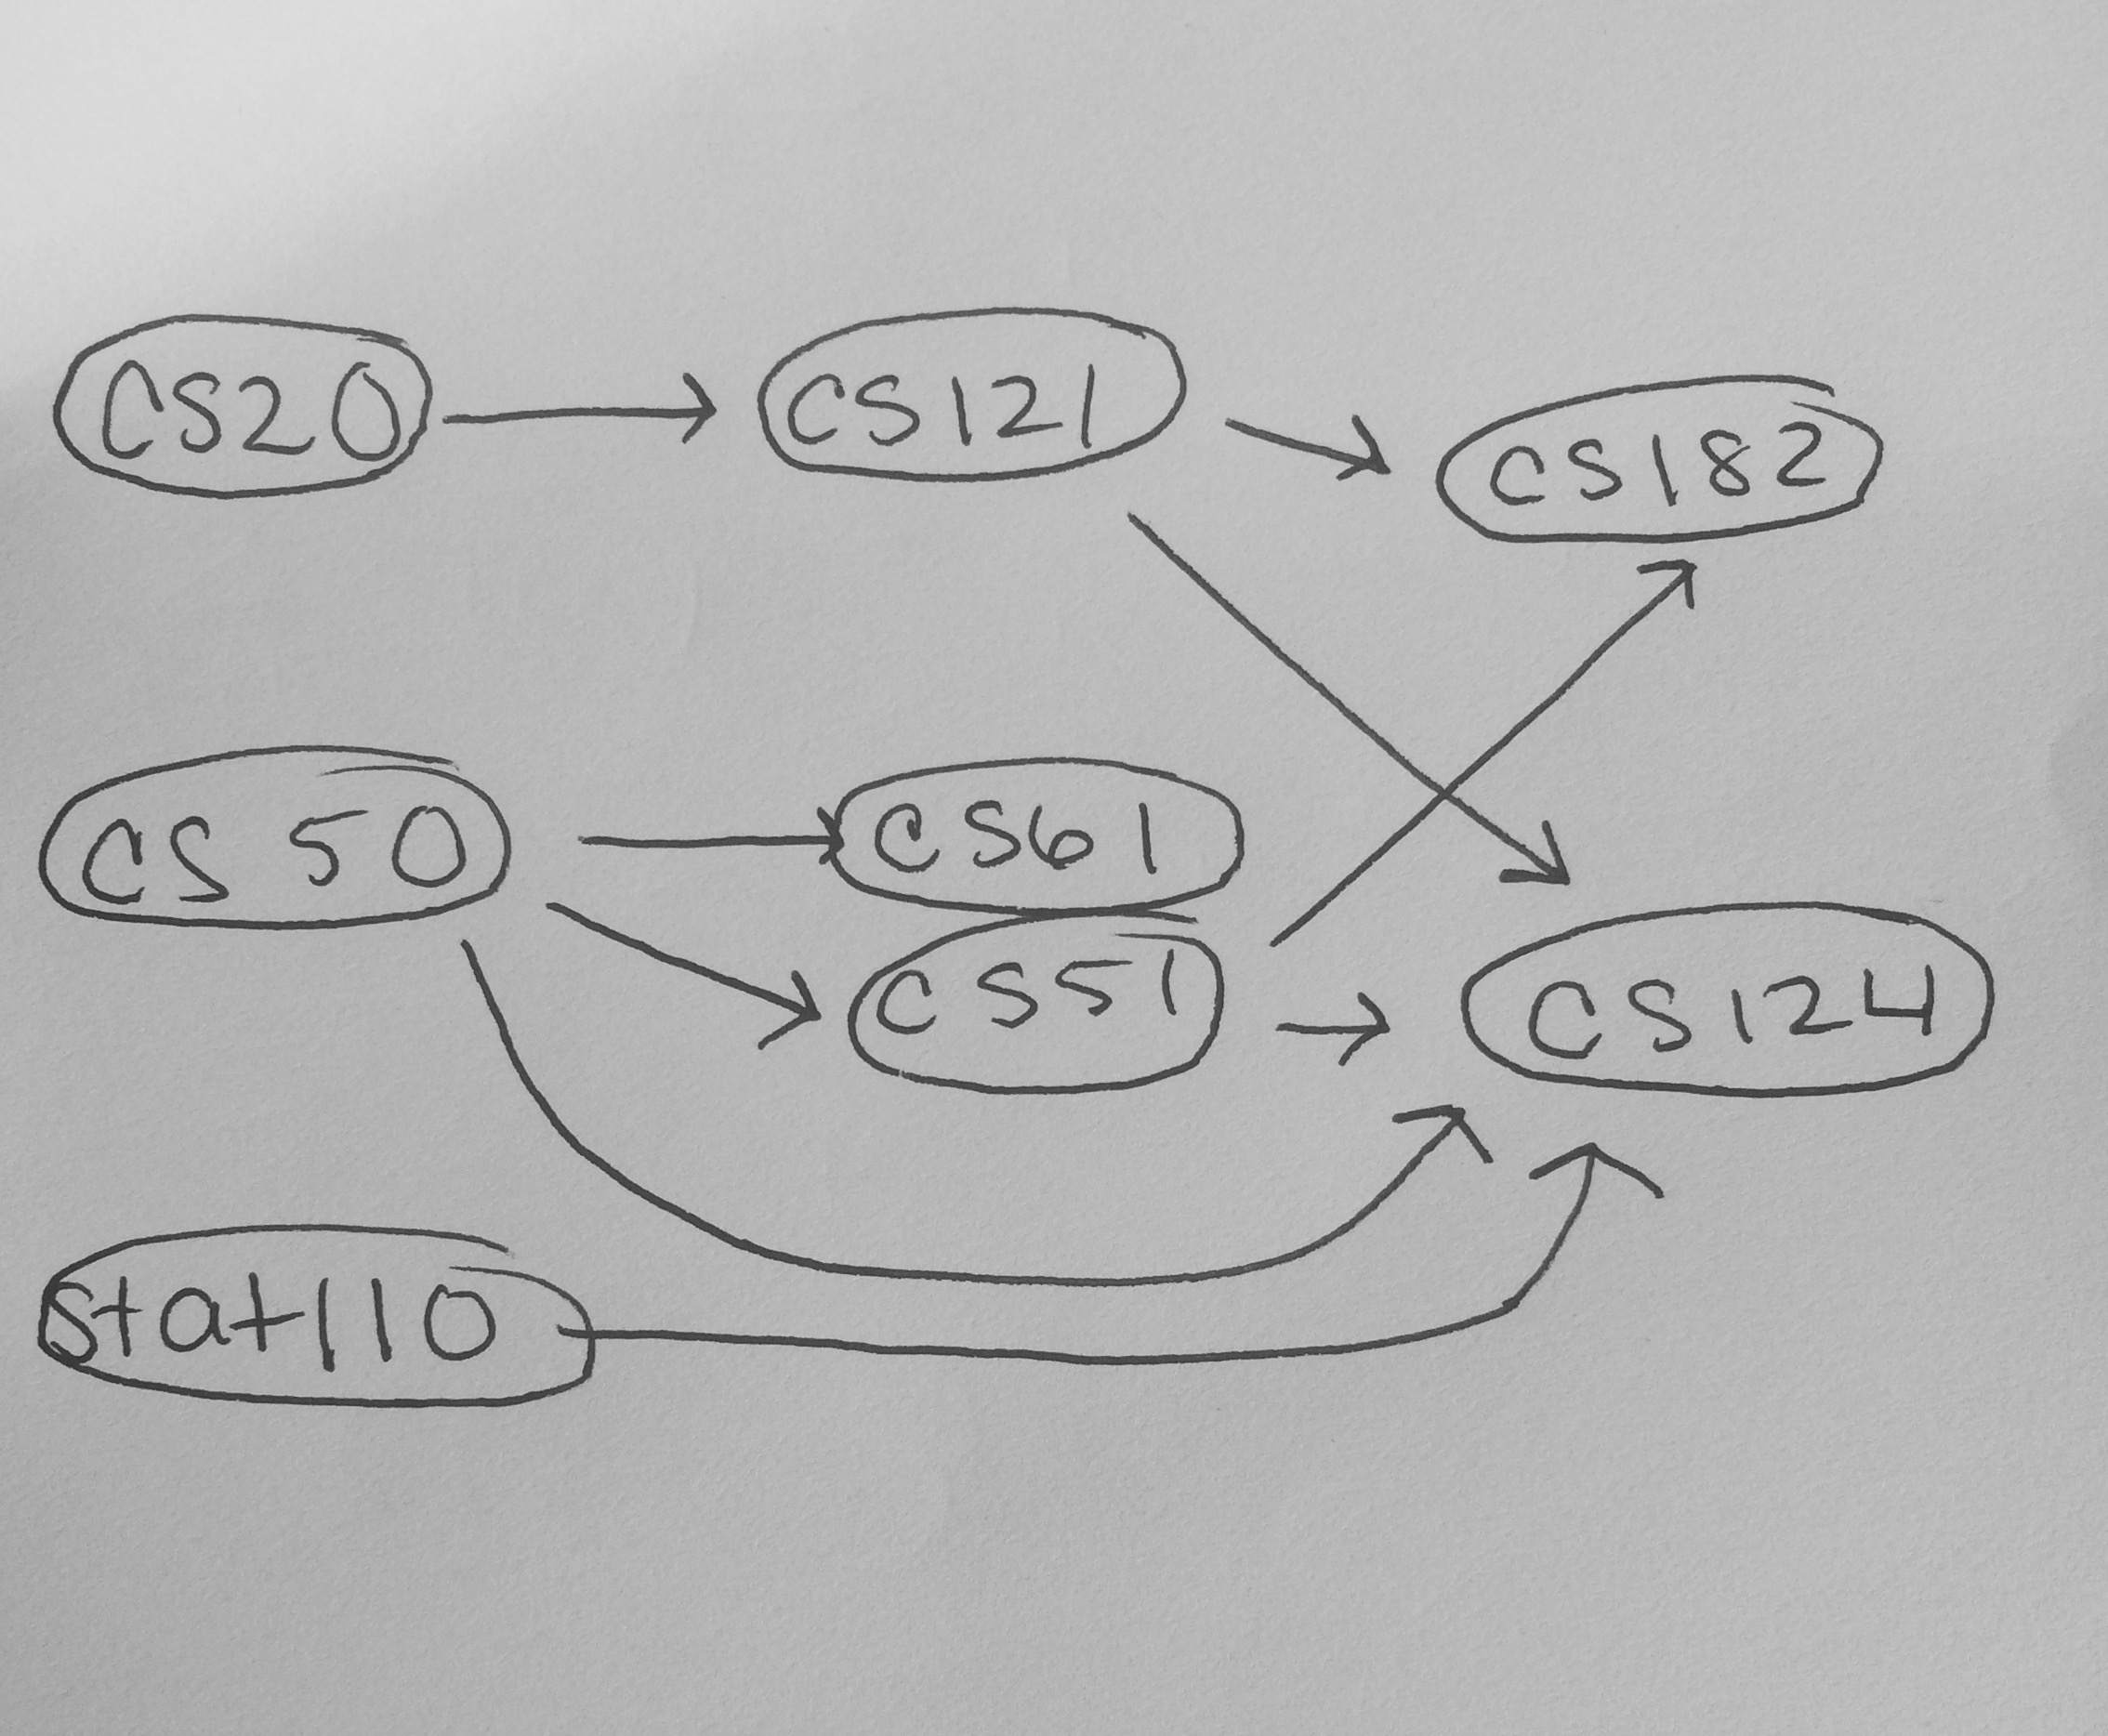 CS20
CS121
CS182
CS50
CS61
CS51
CS124
Stat110